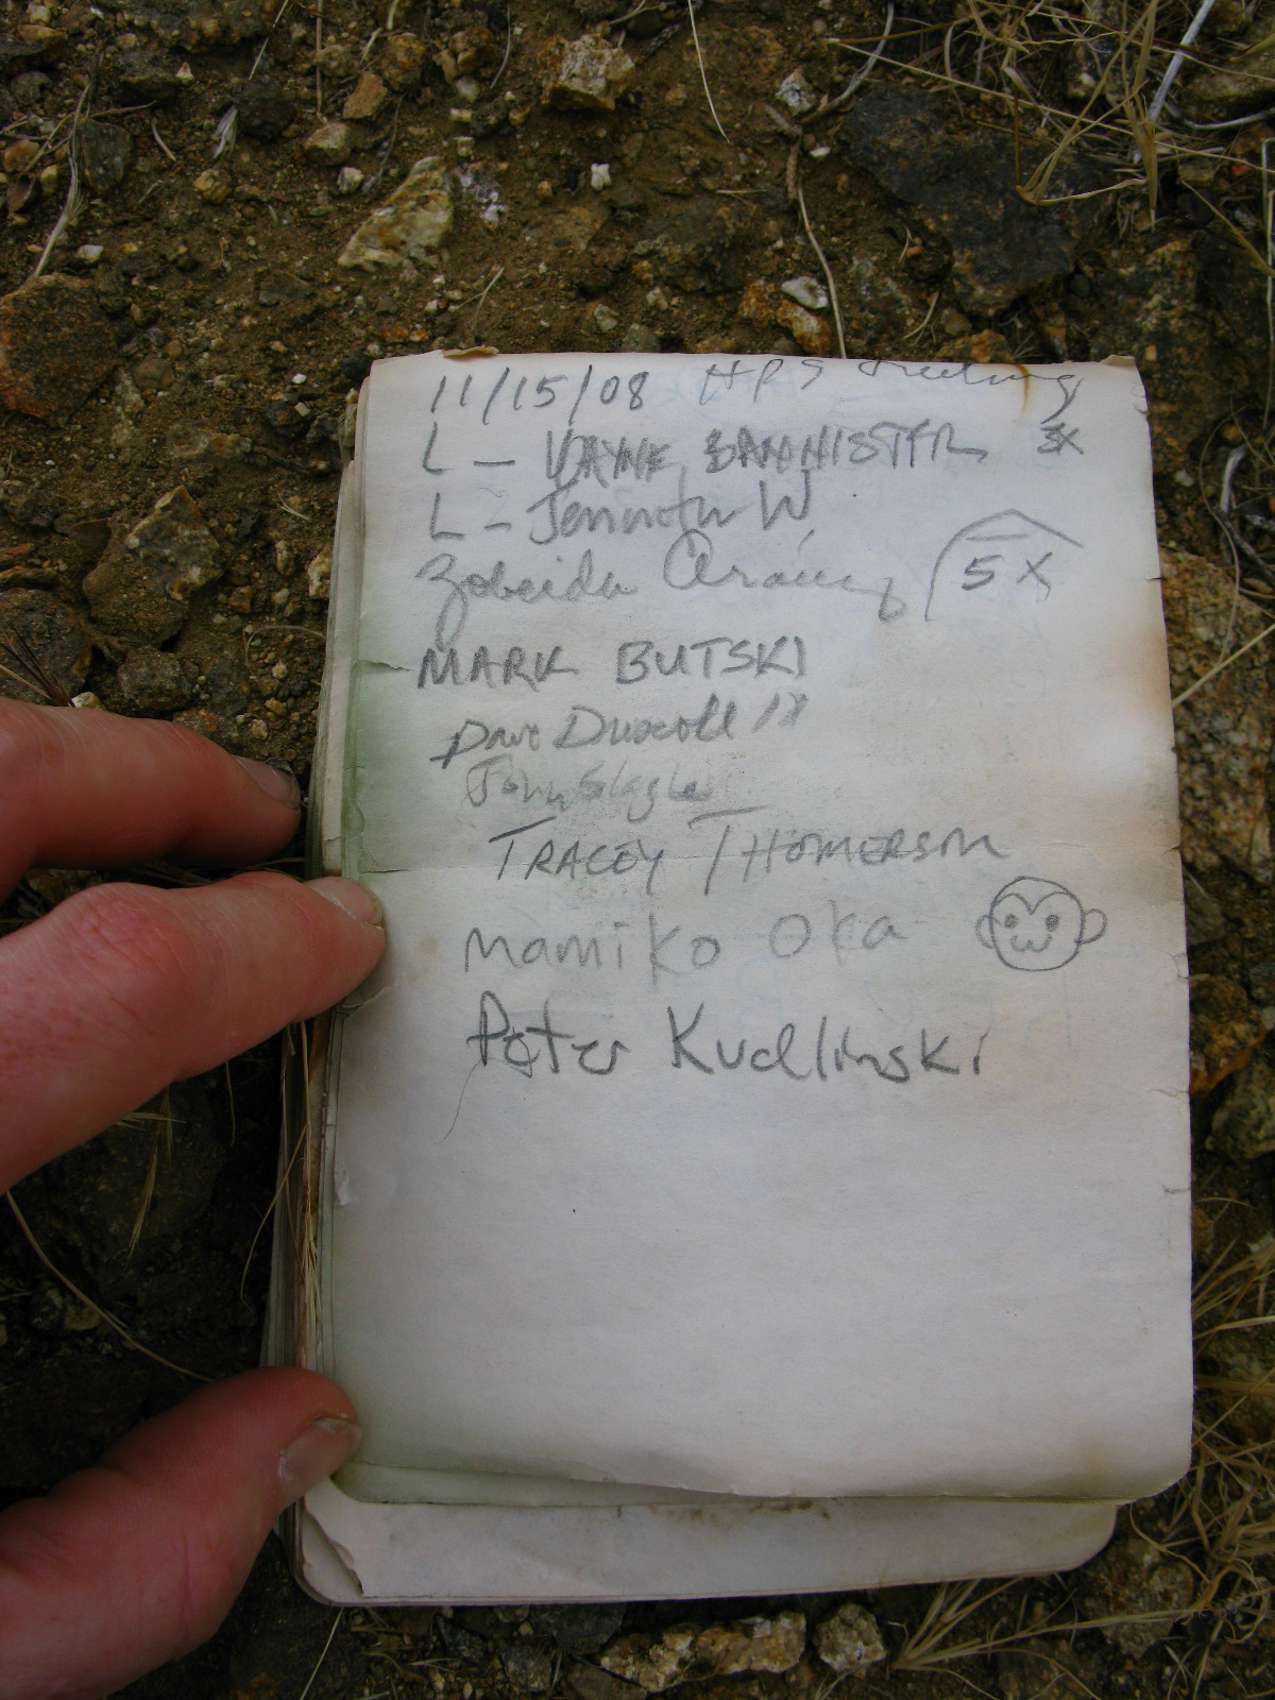 11/15/08 HPS
L - WAYNE BANNISTER 3X
L - Jennifer W
Zobeida 5X
MARK BUTSKI
Dave Driscoll
John Slagle
TRACEY THOMERSON
Mamiko Oka
Peter Kudlinski